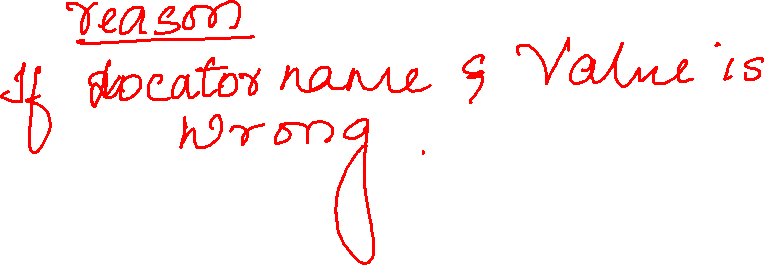 reason
If locator name & Value is
wrong.